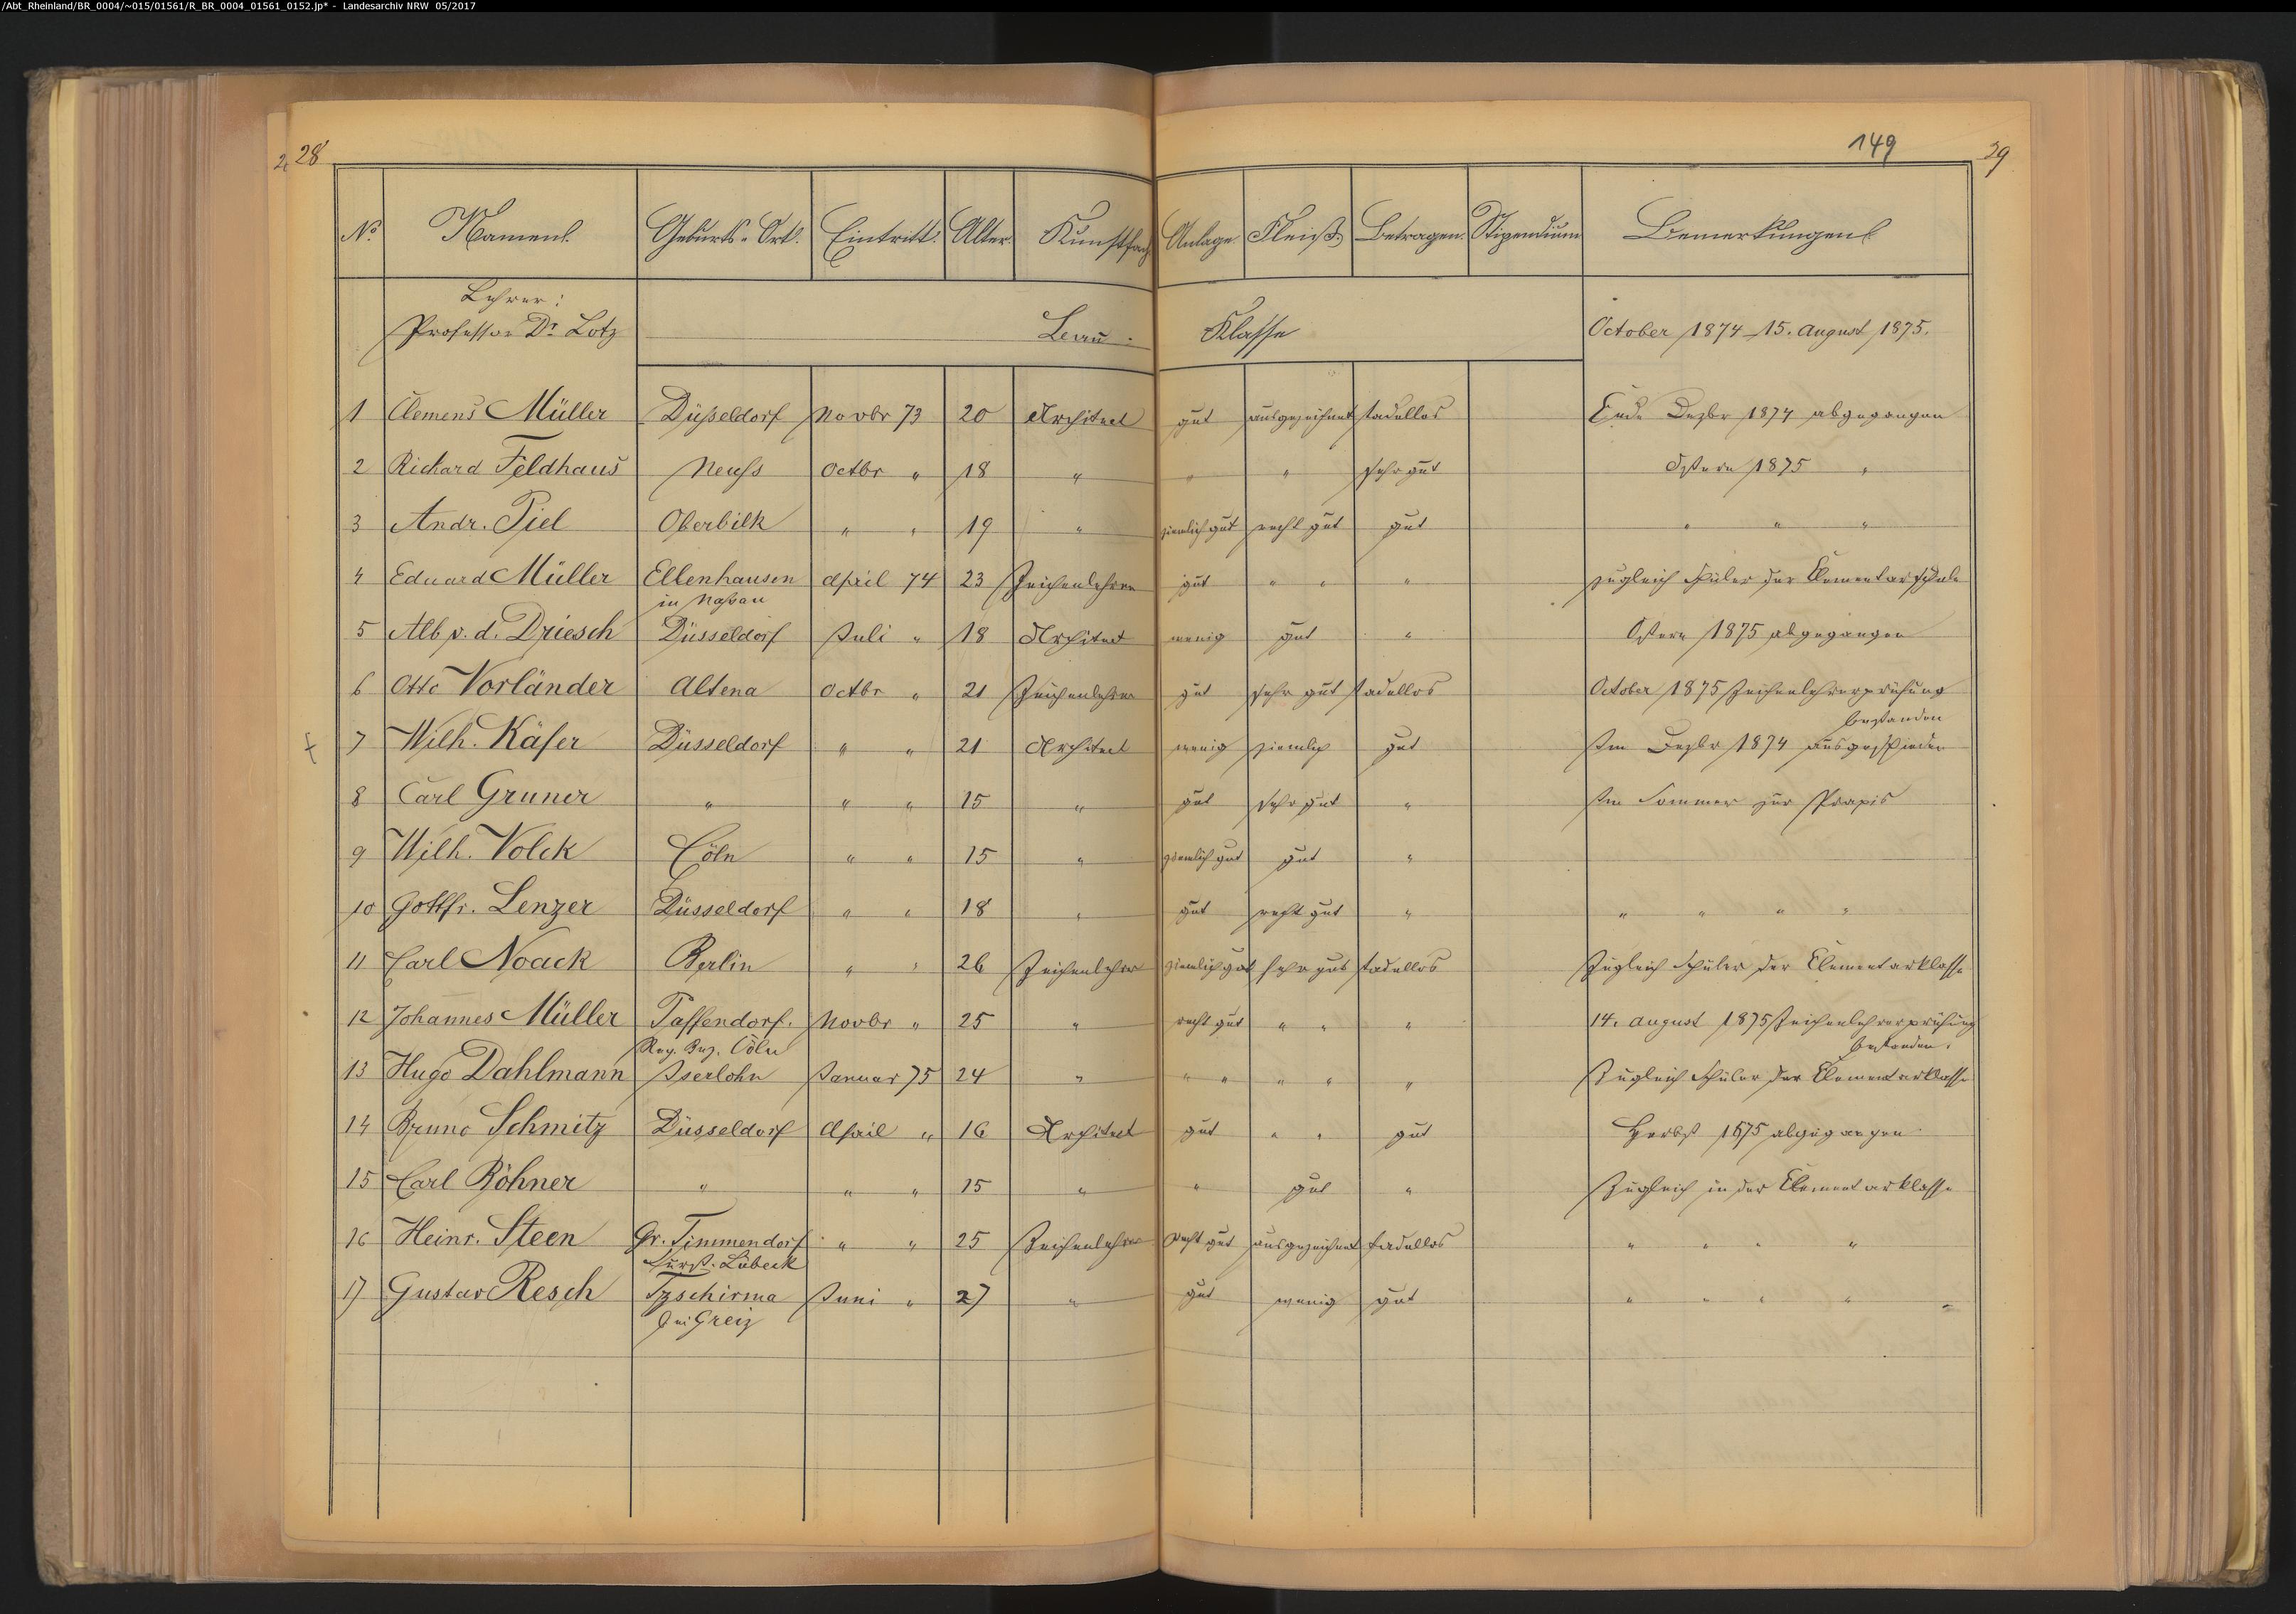 /Abt_Rheinland/BR_0004/~015/01561/R_BR_0004_01561_0152.jp* - Landesarchiv NRW 05/2017
28 149 29
No. Namen. Geburts-Ort. Eintritt. Alter. Kunstfach Anlage. Fleiß. Betragen. Stipendium Bemerkungen
Lehrer:
Professor Dr. Lotz Bau- Klasse October 1874-15. August 1875.
1 Clemens Müller Düsseldorf Novbr 73 20 Architect gut ausgezeichnet tadellos Ende Dezbr 1874 abgegangen
2 Richard Feldhaus Neuss Octbr " 18 " " " sehr gut Ostern 1875 "
3 Andr. Piel Oberbilk " " 19 " ziemlich gut recht gut gut " " "
4 Eduard Müller Ellenhausen April 74 23 Zeichenlehrer gut " " " zugleich Schüler der Elementarschule
in Nassau
5 Alb v. d. Driesch Düsseldorf Juli " 18 Architect wenig gut " Ostern 1875 abgegangen
6 Otto Vorländer Altena Octbr " 21 Zeichenlehrer gut sehr gut tadellos October 1875 Zeichenlehrerprüfung
bestanden
7 Wilh. Käfer Düsseldorf " " 21 Architect wenig ziemlich gut Im Dezbr 1874 ausgeschieden
8 Carl Gruner " " " 15 " gut sehr gut " Im Sommer zur Praxis
9 Wilh. Volck Cöln " " 15 " ziemlich gut gut "
10 Gottfr. Lenzer Düsseldorf " " 18 " gut recht gut " " " " "
11 Carl Noack Berlin " " 26 Zeichenlehrer ziemlich gut sehr gut tadellos Zugleich Schüler der Elementarklasse
12 Johannes Müller Paffendorf. Novbr " 25 " recht gut " " " 14. August 1875 Zeichenlehrerprüfung
Reg. Bez. Cöln bestanden.
13 Hugo Dahlmann Iserlohn Januar 75 24 " " " " " " Zugleich Schüler der Elementarklasse
14 Bruno Schmitz Düsseldorf April " 16 Architect gut " " gut Herbst 1875 abgegangen
15 Carl Röhner " " " 15 " " gut " Zugleich in der Elementarklasse
16 Heinr. Steen Gr. Timmendorf " " 25 Zeichenlehrer recht gut ausgezeichnet tadellos " " " "
Fürst. Lübeck
17 Gustav Resch Tzschirma Juni " 27 " gut wenig gut " " " " "
bei Greiz